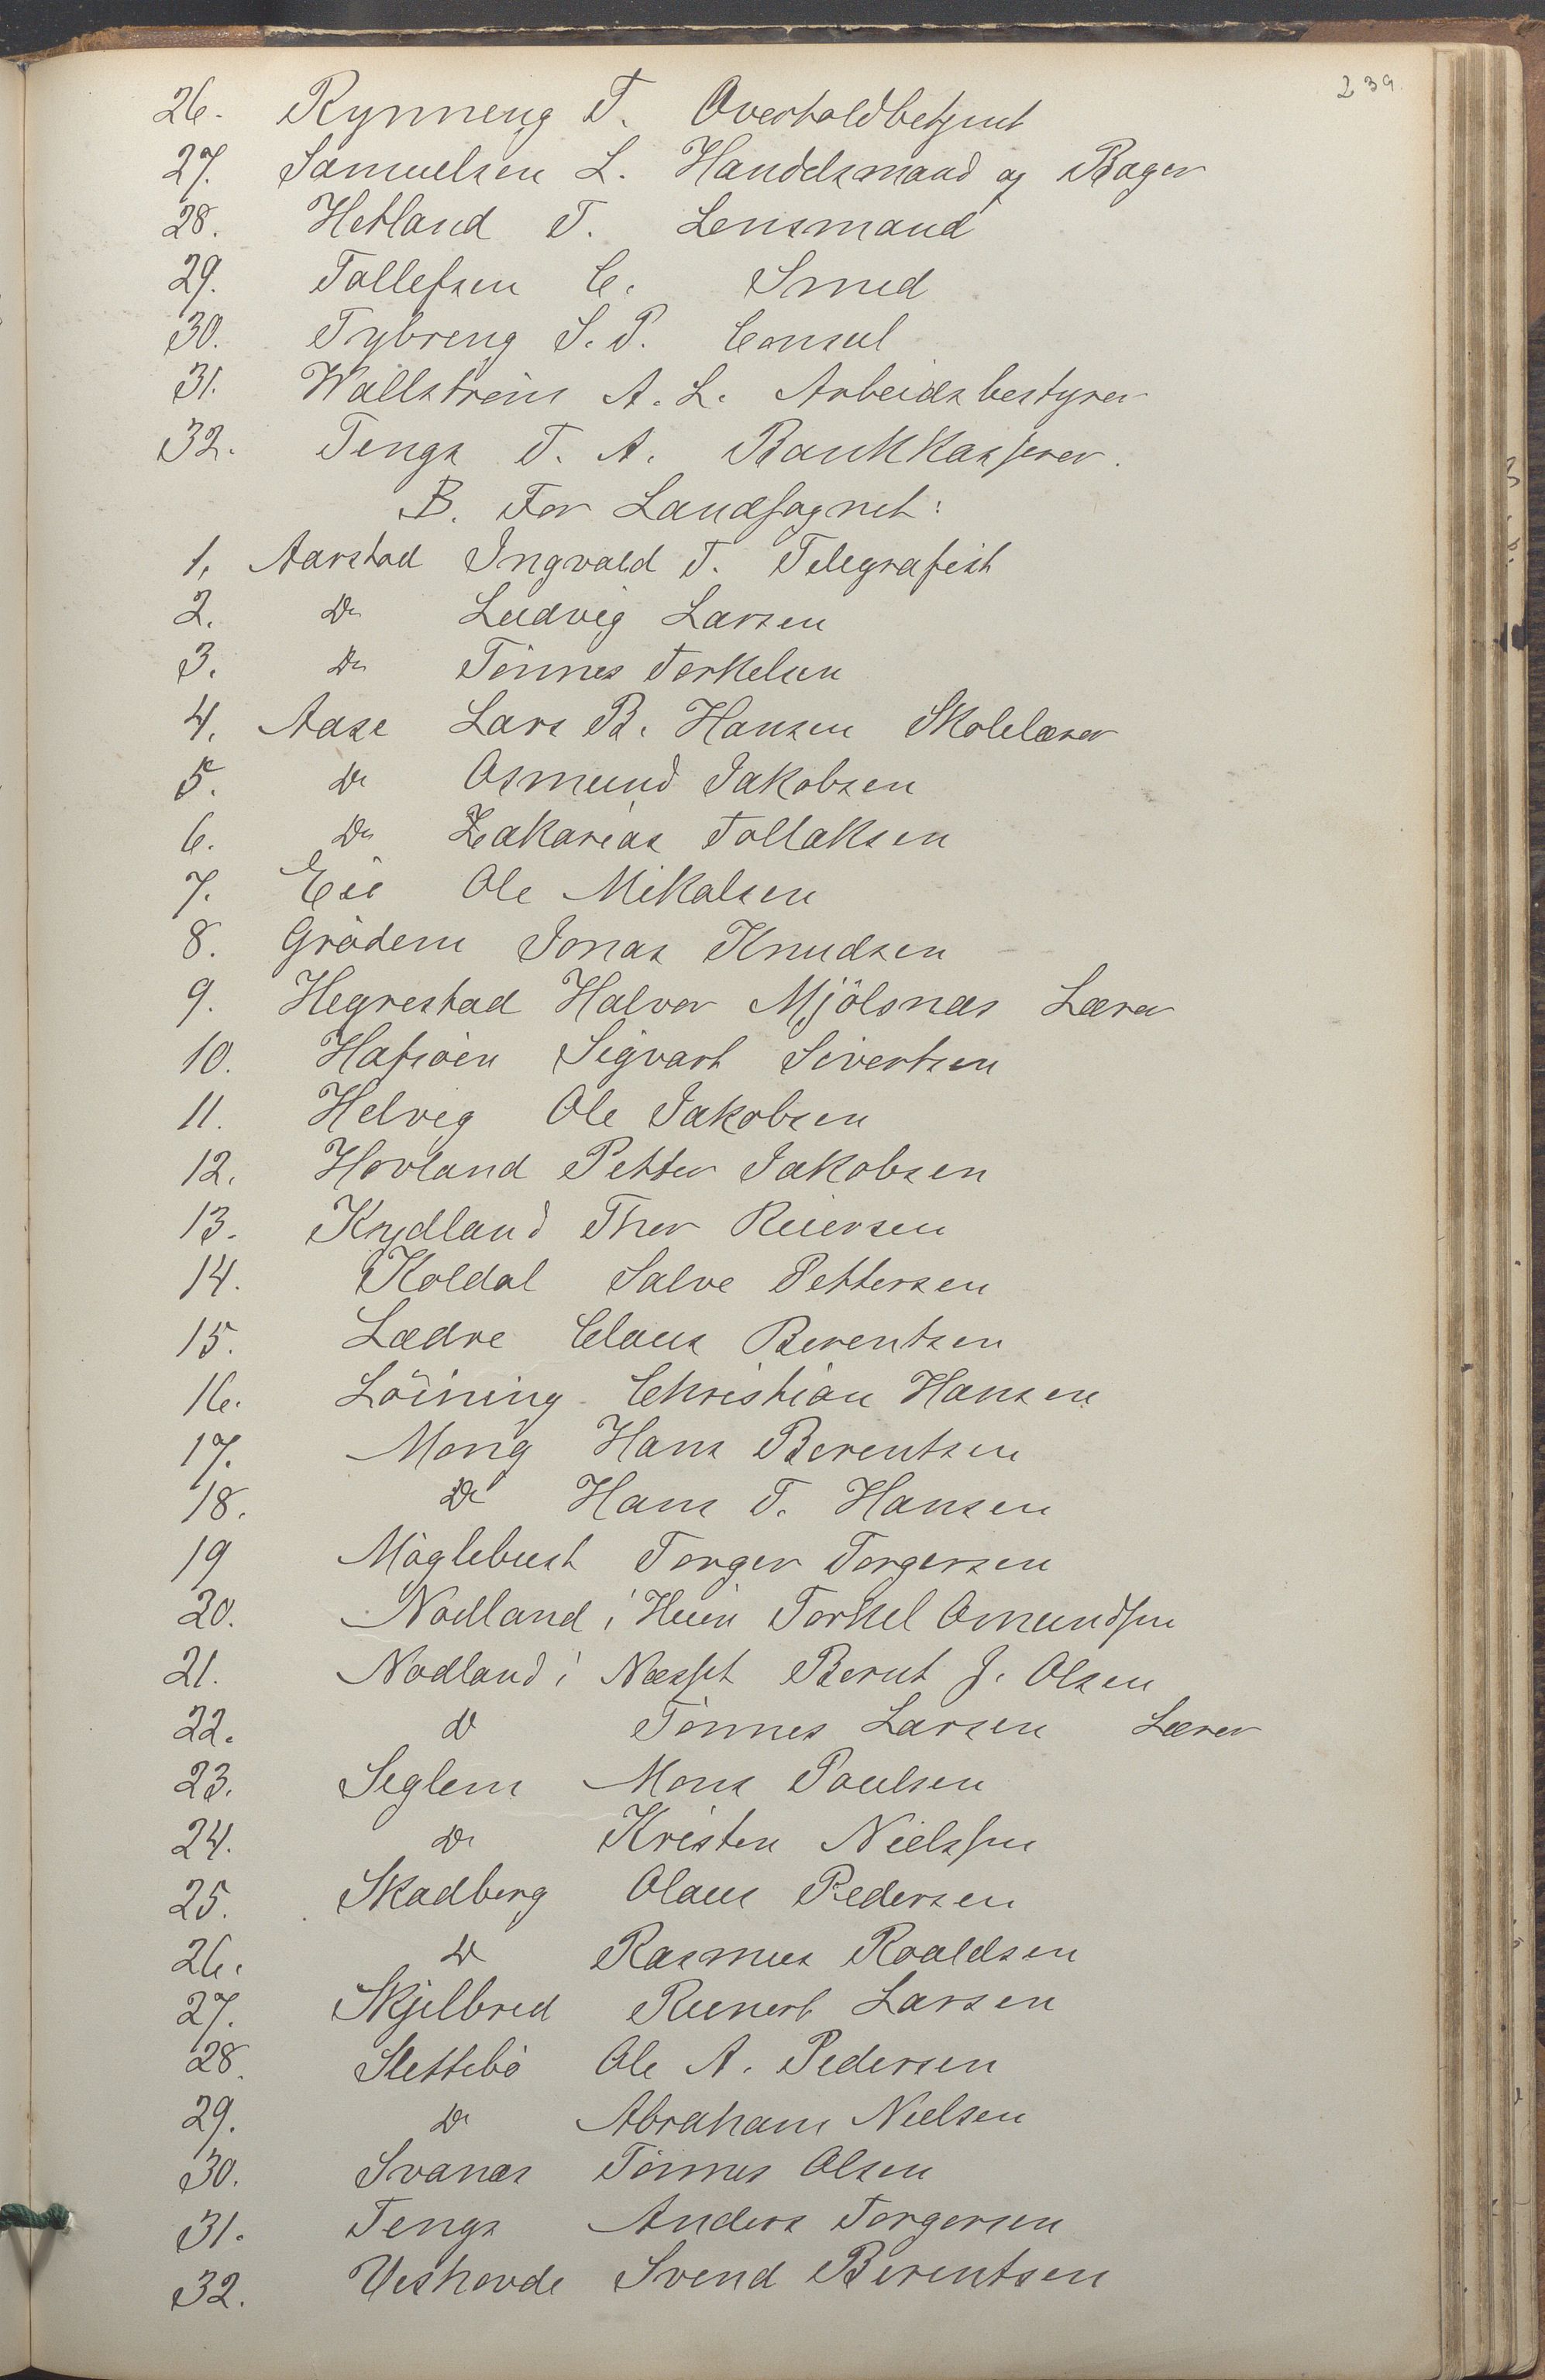 239.
26. Rynneng T. Overtoldbetjent
27. Samuelsen L. Handelsmand og Bager
28. Hetland T. Lensmand
29. Tollefsen C. Smed
30. Tybreng S. P. Consul
31. Wallstrøm A. L. Arbeidsbestyrer
32. Tengs T. A. Bankkasserer.
B. For Landsognet:
1. Aarstad Ingvald T. Telegrafist
2. Do Ludvig Larsen
3. Do Tønnes Torkelsen
4. Aase Lars B. Hansen Skolelærer
5. Do Osmund Jakobsen
6. Do Zakarias Tollaksen
7. Eie Ole Mikalsen
8. Grødem Jonas Knudsen
9. Hegrestad Halvor Mjölsnæs Lærer
10. Hafsøen Sigvart Sivertsen
11. Helvig Ole Jakobsen
12. Hovland Petter Jakobsen
13. Krydland Thor Reiersen
14. Koldal Salve Pettersen
15. Lædre Claus Berentsen
16. Löining Christian Hansen
17. Mong Hans Berentsen
18. Do Hans T. Hansen
19 Møglebust Torger Torgersen
20. Nodland i Heien Torkel Omundsen
21. Nodland i Næsset Bernt J. Olsen
22. Do Tønnes Larsen Lærer
23. Seglem Mons Paulsen
24. Do Kristen Nielssen
25. Skadberg Olaus Pedersen
26. Do Rasmus Roaldsen
27. Skjelbred Reinert Larsen
28. Slettebø Ole A. Pedersen
29. Do Abraham Nielsen
30. Svanæs Tønnes Olsen
31. Tengs Anders Torgersen
32. Veshovde Svend Berentsen